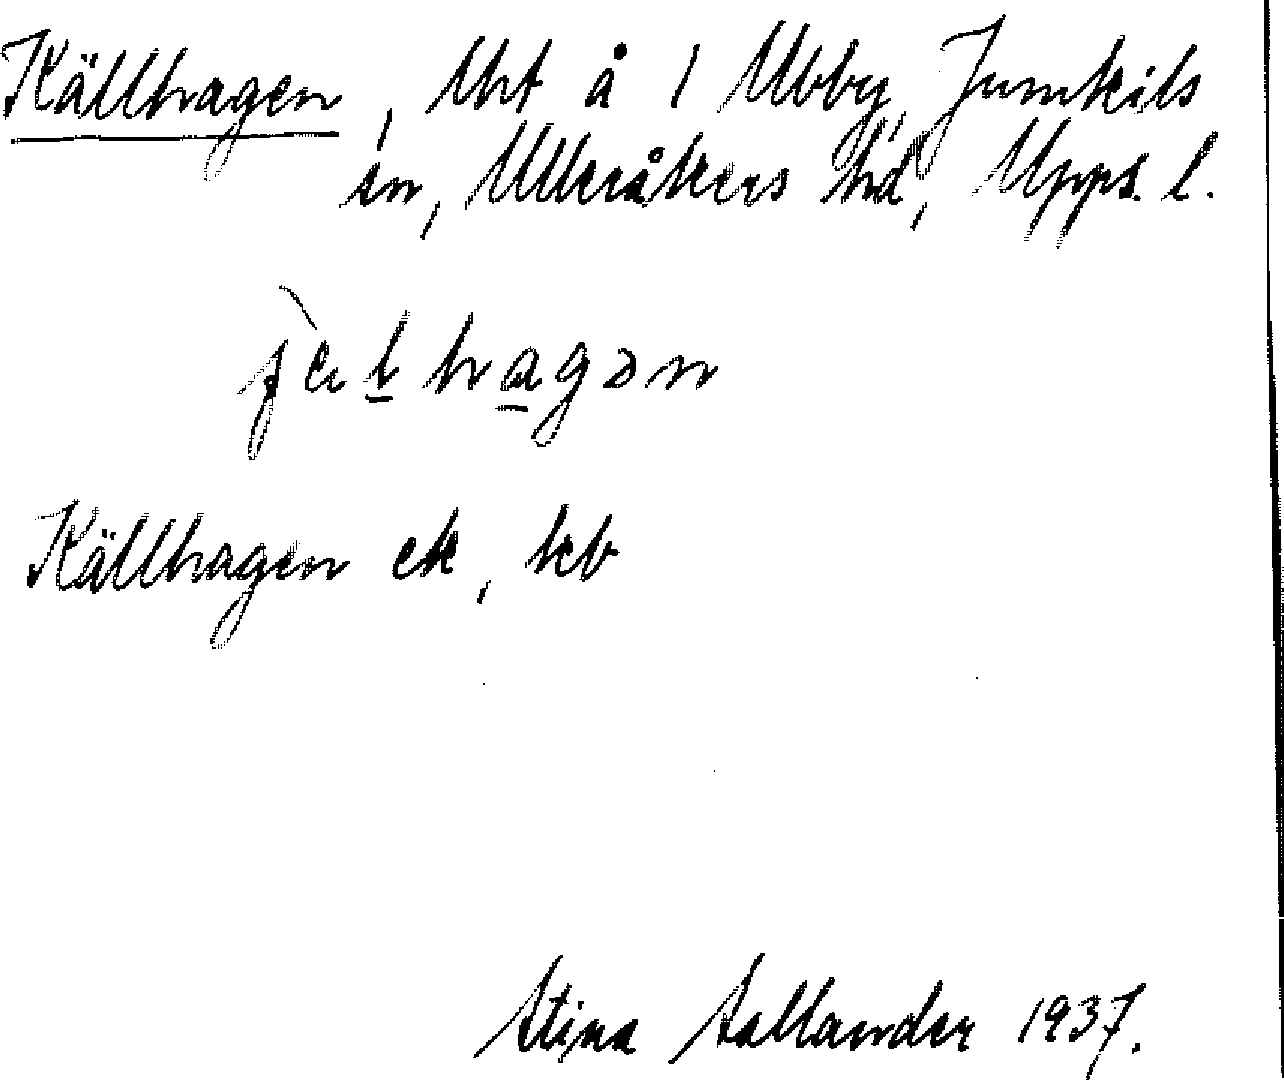 Källhagen, lht å 1 Ubby, Jumkils
sn, Ulleråkers hd, Upps. l.
Källhagen ek, kb
Stina Sallander 1937.